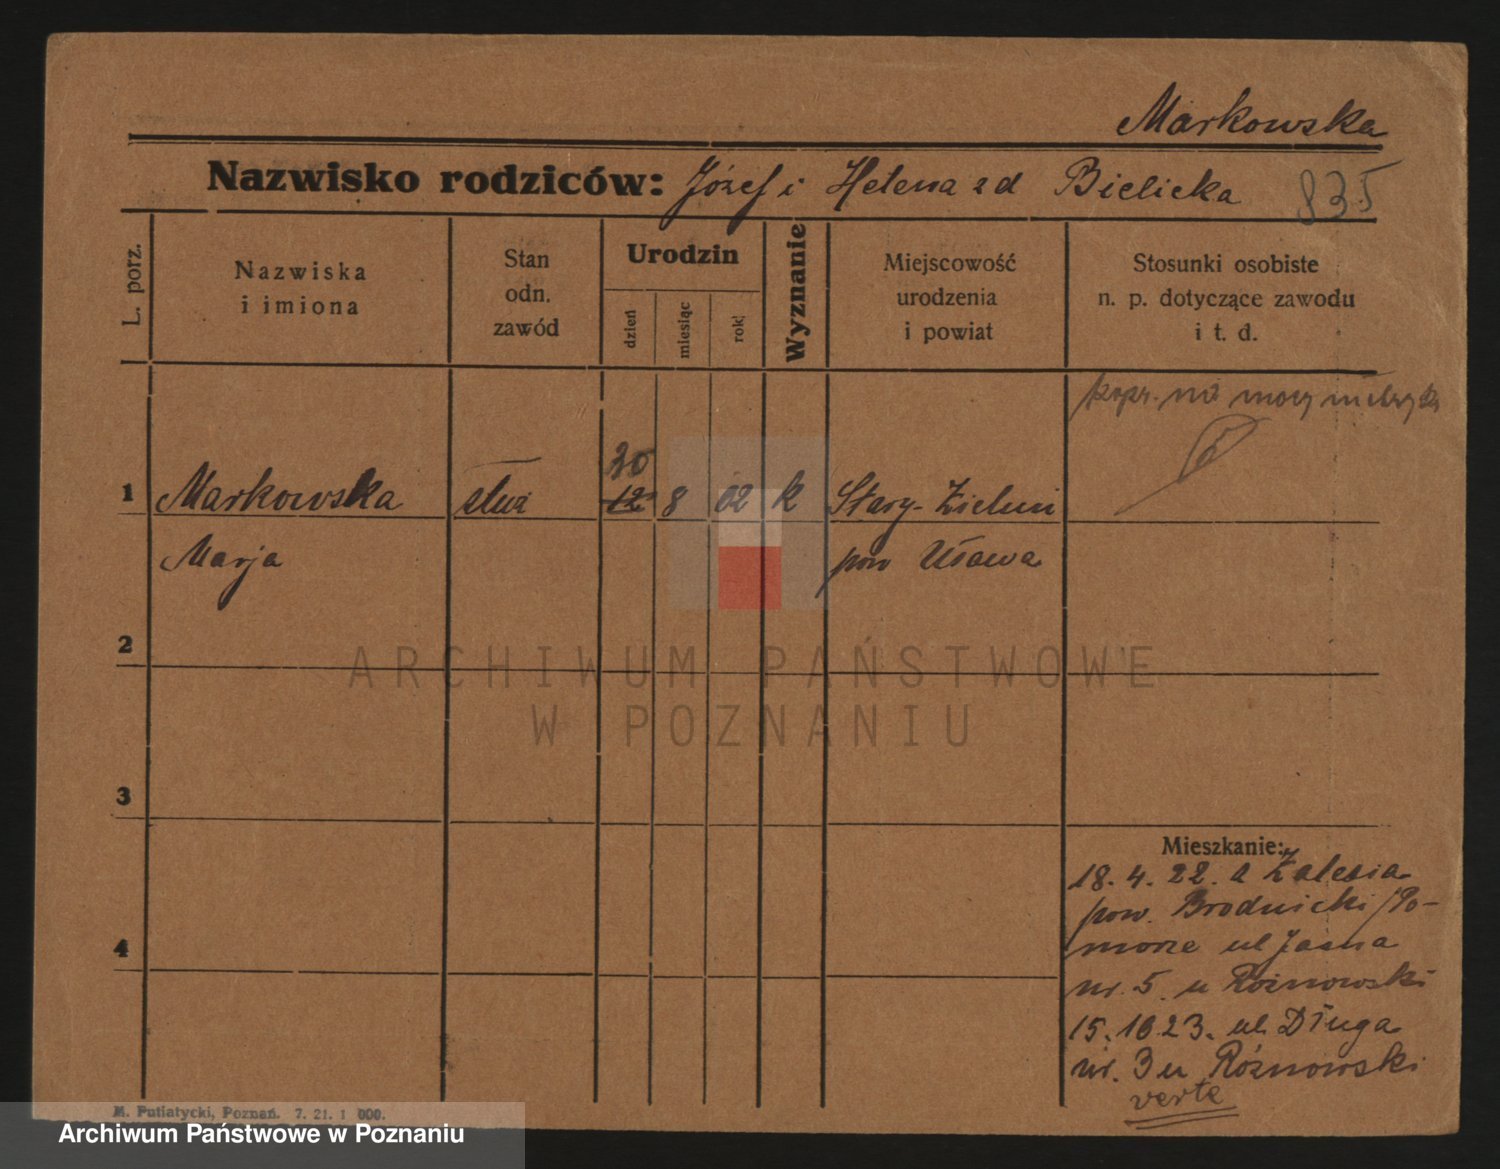 Markowska
Nazwisko rodziców: Józef i Helena zd Bielicka 835
L. porz.
Nazwiska
i imiona
Stan
odn.
zawód
Urodzin
dzień
miesiąc
rok
Wyznanie
Miejscowość
urodzenia
i powiat
Stosunki osobiste
n. p. dotyczące zawodu
i t. d.
popr. na mocy metryki
20
1 Markowska służ 12 8 02 k Stary-Zieluń
Marja pow Mława
2
3
4
ARCHIWUM PAŃSTWOWE
W POZNANIU
Mieszkanie:
18. 4. 22. z Zalesia
pow. Brodnicki /Po-
morze ul Jasna
nr. 5. u Rożnowski
15. 10 23. ul Długa
nr. 3 u Różnowski
verte
M. Putiatycki, Poznań. 7. 21. 1 000.
Archiwum Państwowe w Poznaniu